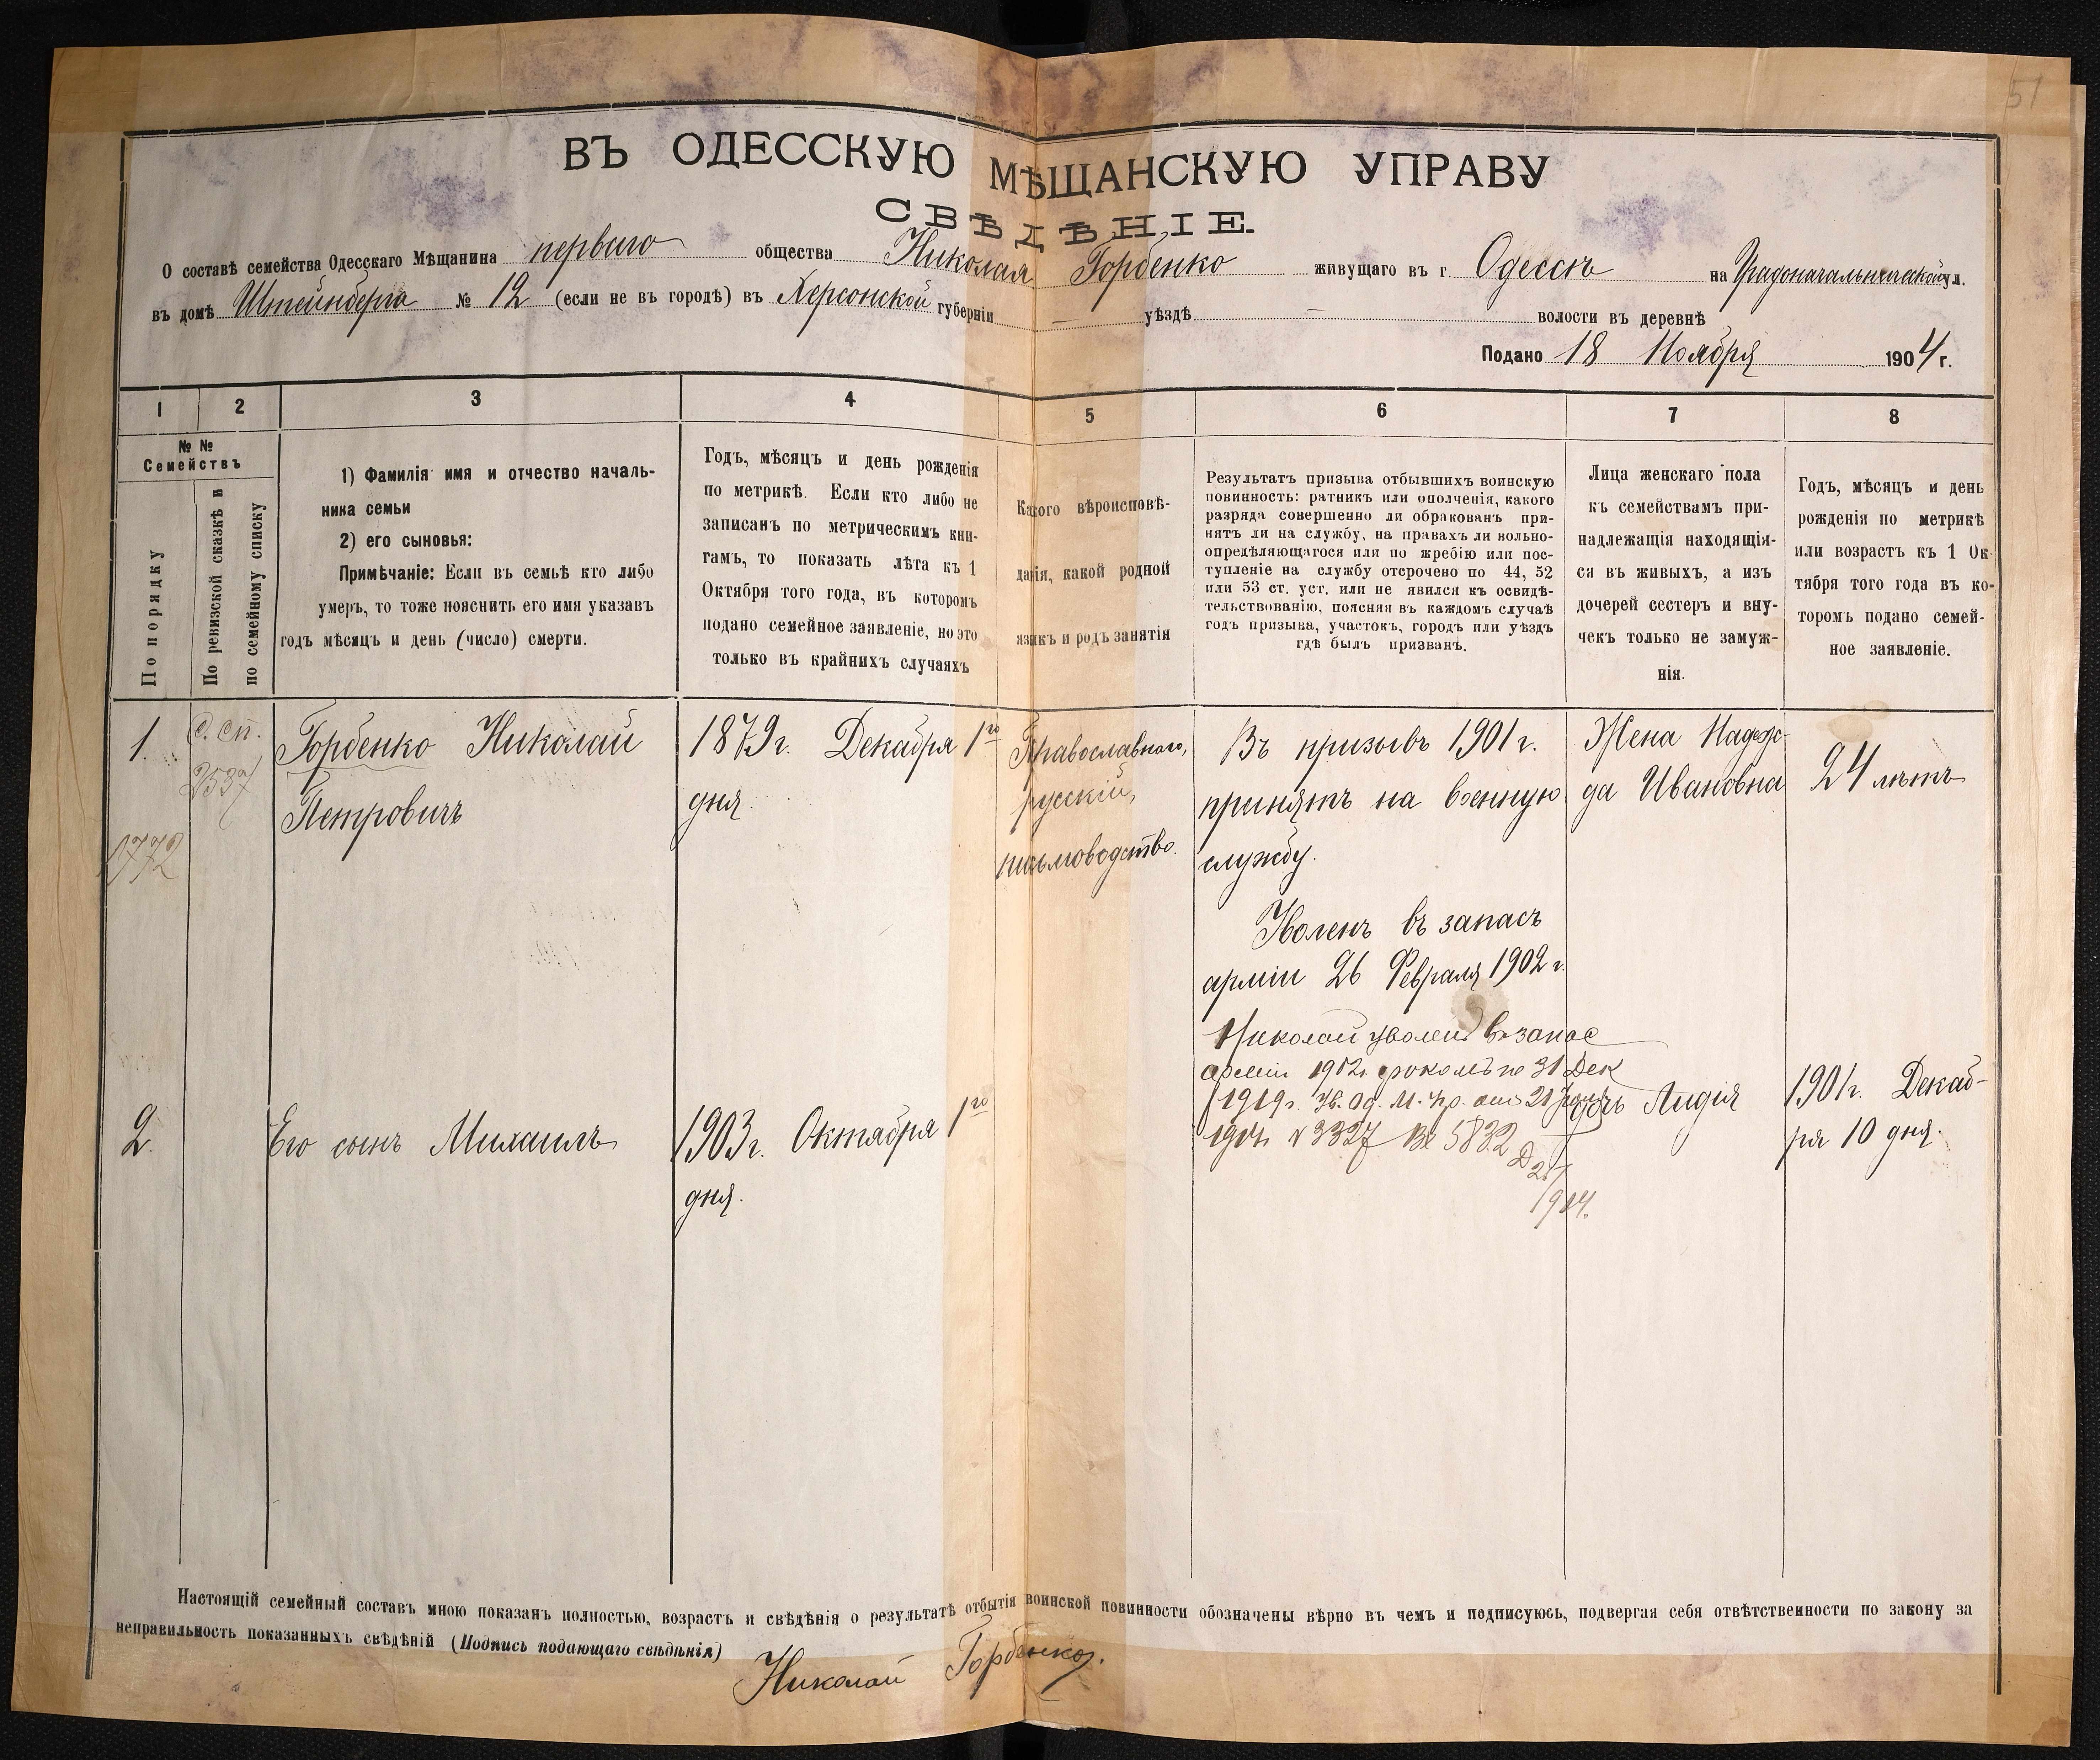 51
ВЪ ОДЕССКУЮ МѢЩАНСКУЮ УПРАВУ
СВѢДѢНІЕ.
О составѣ семейства Одесскаго Мѣщанина перваго общества Николая Горбенко живущаго въ г. Одессѣ на Градоначальнической ул.
въ домѣ Штейнберга № 12 (если не въ городѣ) въ Херсонской губерніи — уѣздѣ — волости въ деревнѣ
Подано 18 Ноября 1904 г.
1
2
3
4
5
6
7
8
№ №
Семействъ
По порядку
По ревизской сказкѣ и
по семейному списку
1) Фамилія имя и отчество началь-
ника семьи
2) его сыновья:
Примѣчаніе: Если въ семьѣ кто либо
умеръ, то тоже пояснить его имя указавъ
годъ мѣсяцъ и день (число) смерти.
Годъ, мѣсяцъ и день рожденія
по метрикѣ. Если кто либо не
записанъ по метрическимъ кни-
гамъ, то показать лѣта къ 1
Октября того года, въ которомъ
подано семейное заявленіе, но это
только въ крайнихъ случаяхъ
Какого вѣроисповѣ-
данія, какой родной
языкъ и родъ занятія
Результатъ призыва отбывшихъ воинскую
повинность: ратникъ или ополченія, какого
разряда совершенно ли обракованъ при-
нятъ ли на службу, на правахъ ли вольно-
опредѣляющагося или по жребію или пос-
тупленіе на службу отсрочено по 44, 52
или 53 ст. уст. или не явился къ освидѣ-
тельствованію, поясняя въ каждомъ случаѣ
годъ призыва, участокъ, городъ или уѣздъ
гдѣ былъ призванъ.
Лица женскаго пола
къ семействамъ при-
надлежащія находящія-
ся въ живыхъ, а изъ
дочерей сестеръ и вну-
чекъ только не замуж-
нія.
Годъ, мѣсяцъ и день
рожденія по метрикѣ
или возрастъ къ 1 Ок-
тября того года въ ко-
торомъ подано семей-
ное заявленіе.
1.
с. сп.
Горбенко Николай
Петровичъ
1879 г. Декабря 1го
дня.
Православнаго,
русскій,
письмоводство.
Въ призывъ 1901 г.
принятъ на военную
службу.
Уволенъ въ запасъ
арміи 26 Февраля 1902 г.
Николай уволенъ въ запас
арміи 1902 г. срокомъ по 31 Дек
1919 г.
№ 3327
5832
1904.
Жена Надеж-
да Ивановна
24 лѣтъ
2.
Его сынъ Михаилъ
1903 г. Октября 1го
дня.
дочь Лидія
1901 г. Декаб-
ря 10 дня.
Настоящій семейный составъ мною показанъ полностью, возрастъ и свѣдѣнія о результатѣ отбытія воинской повинности обозначены вѣрно въ чемъ и подписуюсь, подвергая себя отвѣтственности по закону за
неправильность показанныхъ свѣдѣній (Подпись подающаго свѣдѣнія)
Николай Горбенко.